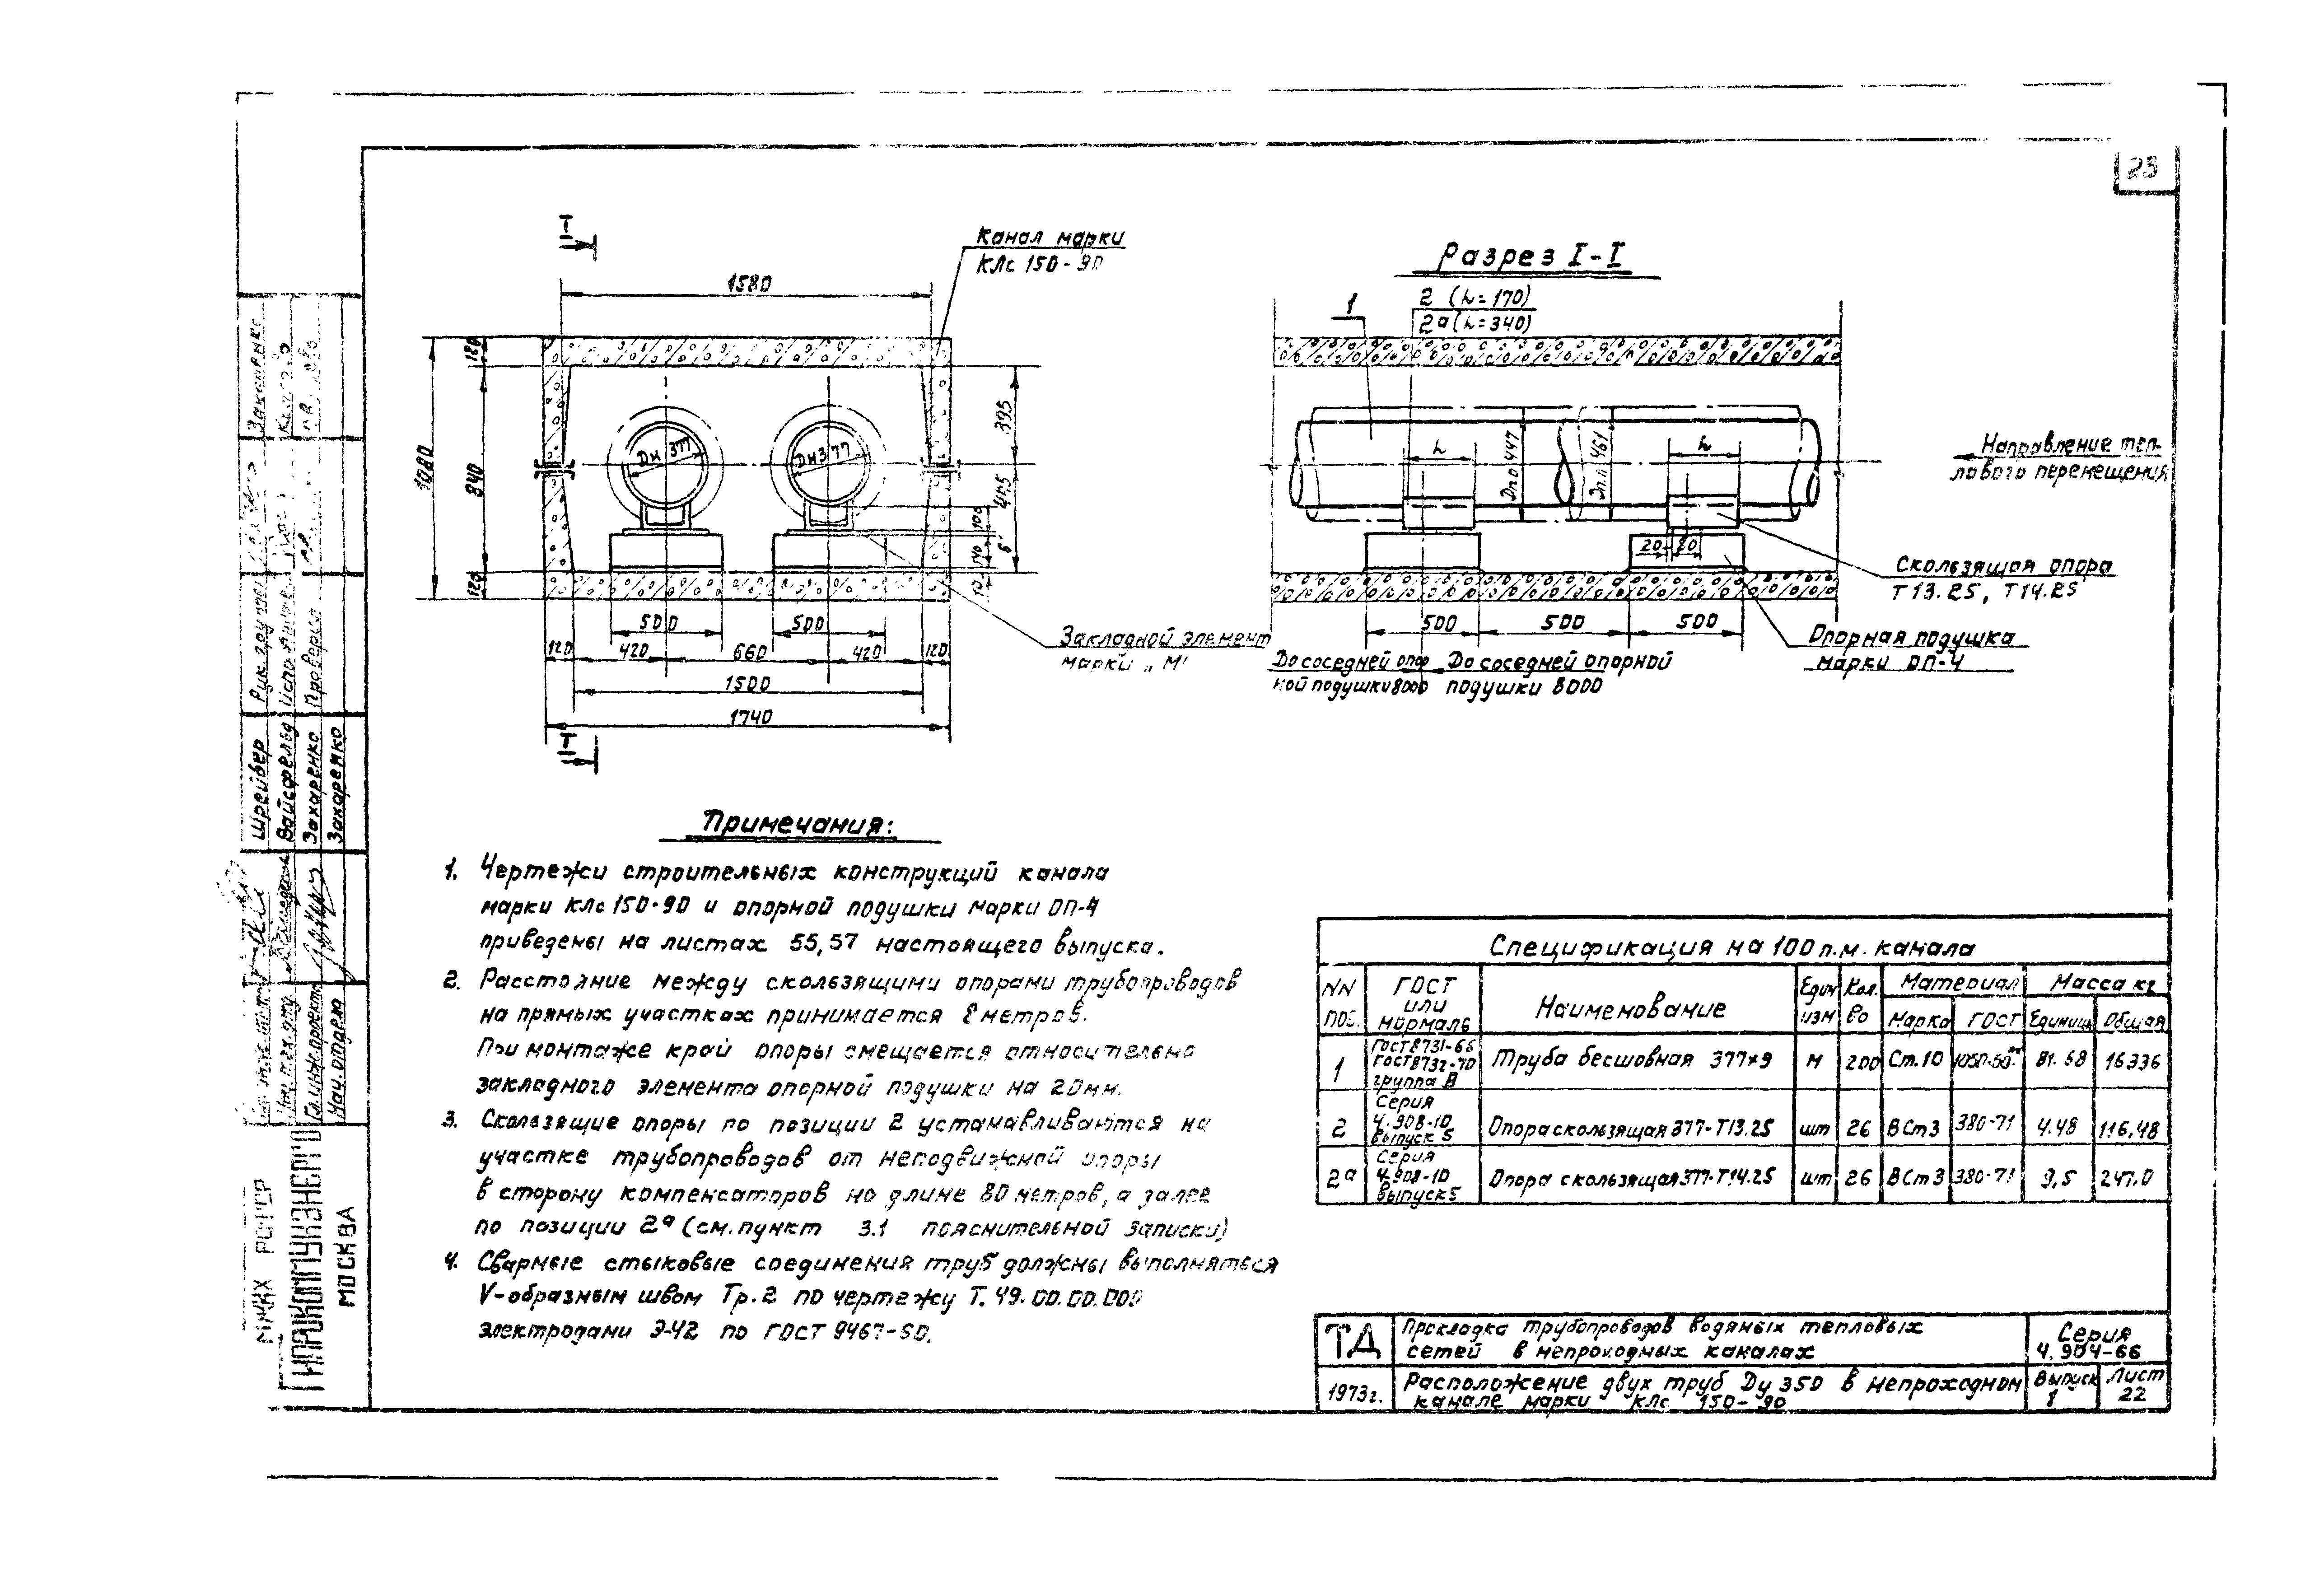 23
I
Канал марки
КЛс 150-90
1580
120
1080
840
120
395
Дн 377
Дн 377
100
140
10
500
500
120
420
660
420
120
1500
1740
I
Закладной элемент
марки „М"
Разрез I-I
1
2 (h=170)
2а (h=340)
Дп.о 447
Дп.п 461
h
h
Направление теп-
лового перемещения
20
80
Скользящая опора
Т13.25, Т14.25
500
500
500
Опорная подушка
марки ОП-4
До соседней опор
ной подушки 8000
До соседней опорной
подушки 8000
Примечания:
1. Чертежи строительных конструкций канала
марки КЛс 150-90 и опорной подушки марки ОП-4
приведены на листах 55,57 настоящего выпуска.
2. Расстояние между скользящими опорами трубопроводов
на прямых участках принимается 8 метров.
При монтаже край опоры смещается относительно
закладного элемента опорной подушки на 20мм.
3. Скользящие опоры по позиции 2 устанавливаются на
участке трубопроводов от неподвижной опоры
в сторону компенсаторов на длине 80 метров, а далее
по позиции 2а (см. пункт 3.1 пояснительной записки)
4. Сварные стыковые соединения труб должны выполняться
V-образным швом Тр.2 по чертежу Т. 49.00.00.000
электродами Э-42 по ГОСТ 9467-60.
Спецификация на 100 п.м. канала
NN поз. ГОСТ или нормаль Наименование Един изм Кол. во Материал Масса кг
Марка ГОСТ Единицы Общая
1 ГОСТ8731-66 ГОСТ8732-70 группа В Труба бесшовная 377×9 м 200 Ст.10 1050-60 81.68 16336
2 Серия 4.908-10 выпуск 5 Опора скользящая 377-Т13.25 шт 26 ВСт3 380-71 4.48 116,48
2а Серия 4.908-10 выпуск 5 Опора скользящая 377-Т14.25 шт 26 ВСт3 380-71 9,5 247.0
ТД
Прокладка трубопроводов водяных тепловых
сетей в непроходных каналах
Серия
4.904-66
1973г.
Расположение двух труб Ду 350 в непроходном
канале марки КЛс 150-90
Выпуск
1
Лист
22
Шрейбер
Вайсфельд
Захаренко
Захаренко
Рук. группы
Проверил
Гл.инж.проекта
Нач. отдела
МЖКХ РСФСР
ГИПРОКОММУНЭНЕРГО
МОСКВА